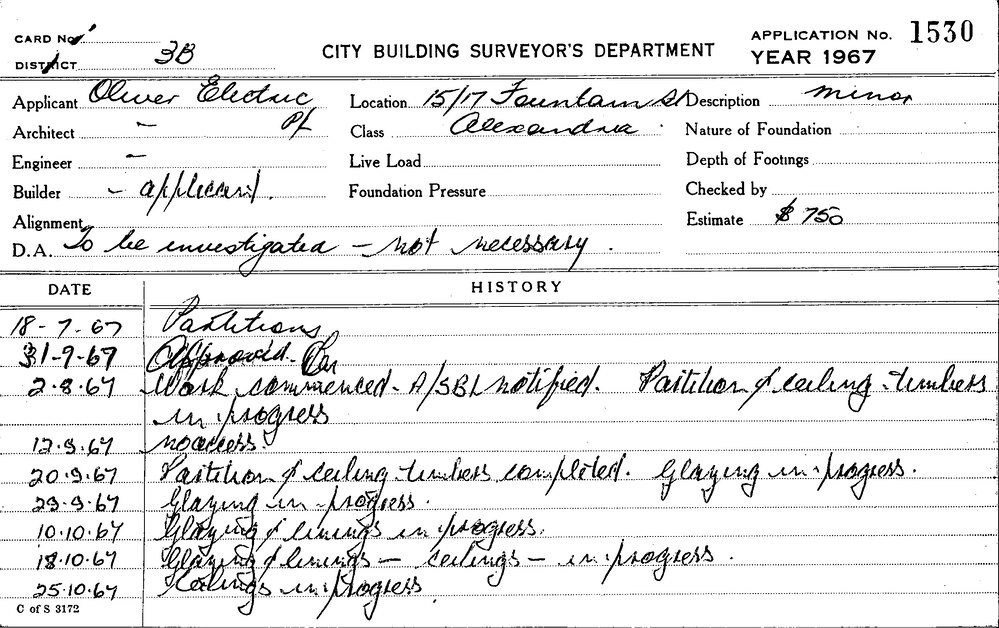 CARD No. 1
CITY BUILDING SURVEYOR'S DEPARTMENT
APPLICATION No. 1530
DISTRICT 3B
YEAR 1967
Applicant Oliver Electric P/L Location 15/17 Fountain St Description minor
Architect - Class Alexandria Nature of Foundation
Engineer - Live Load Depth of Footings
Builder - applicant. Foundation Pressure Checked by
Alignment Estimate $ 750
D.A. To be investigated - not necessary.
DATE HISTORY
18-7-67 Partitions
31-7-67 Approved.
2.8.67 Work commenced - A/SBI notified. Partition & ceiling timbers
in progress
12.9.67 no access.
20.9.67 Partition & ceiling timbers completed. Glazing in progress.
29.9.67 Glazing in progress.
10.10.67 Glazing & linings in progress.
18.10.67 Glazing & linings - ceilings - in progress.
25.10.67 Ceilings in progress.
C of S 3172